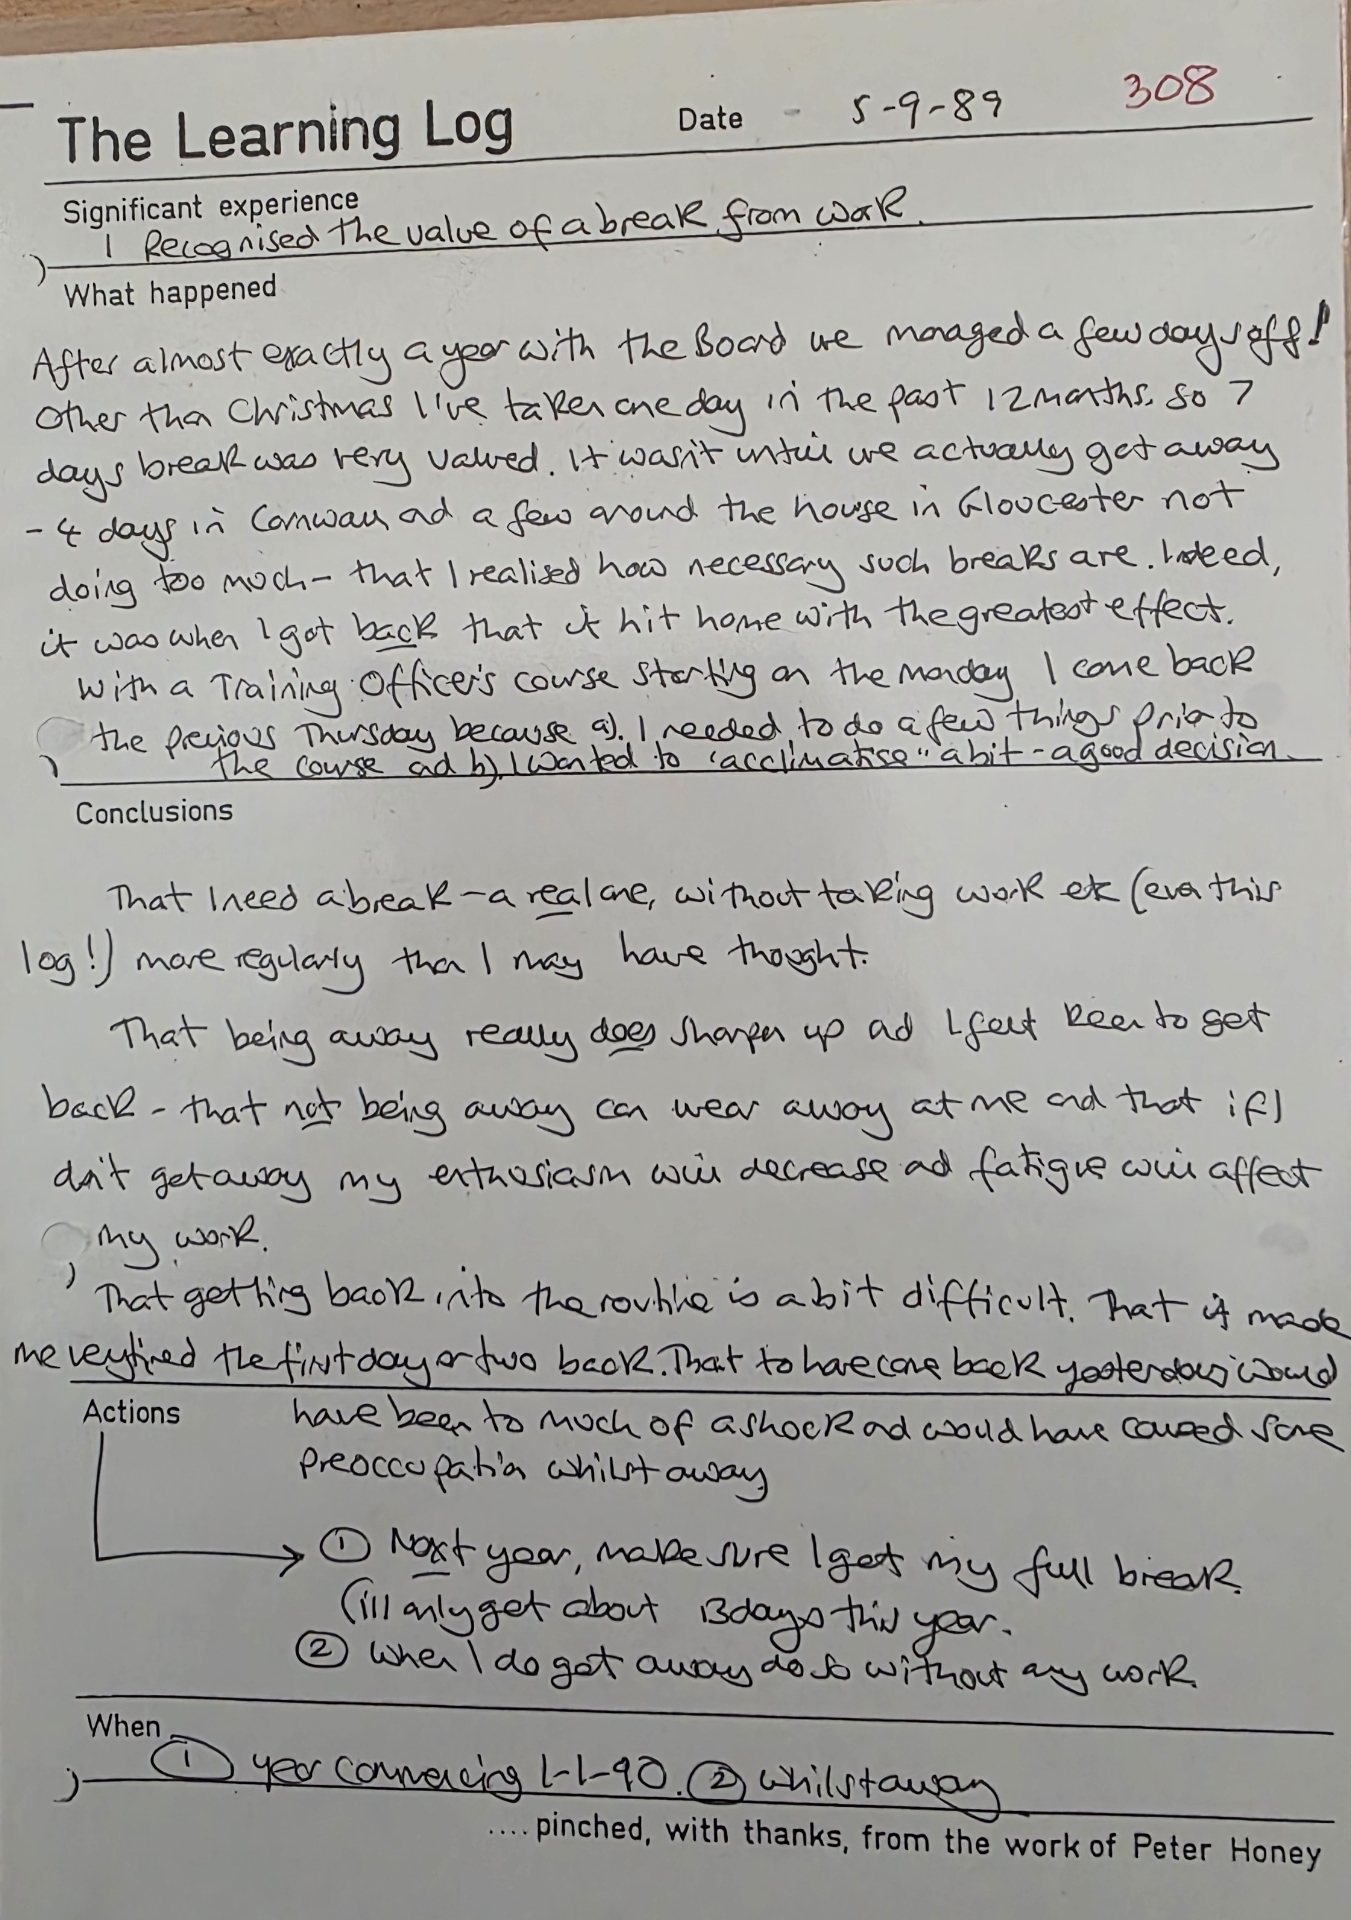 The Learning Log Date - 5-9-89 308
Significant experience
I Recognised the value of a break from work.
What happened
After almost exactly a year with the Board we managed a few days off!
Other than Christmas I've taken one day in the past 12 months. So 7
days break was very valued. It wasn't until we actually got away
- 4 days in Cornwall and a few around the house in Gloucester not
doing too much - that I realised how necessary such breaks are. Indeed,
it was when I got back that it hit home with the greatest effect.
With a Training Officer's course starting on the Monday I came back
the previous Thursday because a). I needed to do a few things prior to
the course and b). I wanted to "acclimatise" a bit - a good decision.
Conclusions
That I need a break - a real one, without taking work etc (even this
log!) more regularly than I may have thought.
That being away really does sharpen up and I felt keen to get
back - that not being away can wear away at me and that if I
don't get away my enthusiasm will decrease and fatigue will affect
my work.
That getting back into the routine is a bit difficult. That it made
me very tired the first day or two back. That to have come back yesterday would
Actions have been to much of a shock and would have caused some
preoccupation whilst away
① Next year, make sure I get my full break.
(I'll only get about 13 days this year.
② When I do get away do so without any work.
When
① year commencing 1-1-90. ② whilst away
.... pinched, with thanks, from the work of Peter Honey